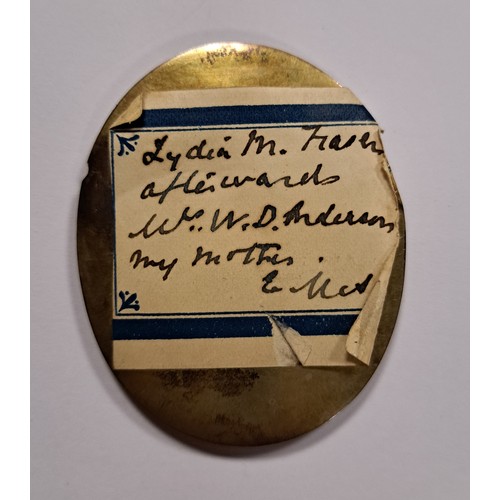 Lydia M. Fraser
afterwards
Mrs. W. D. Anderson
my mother.
E McA